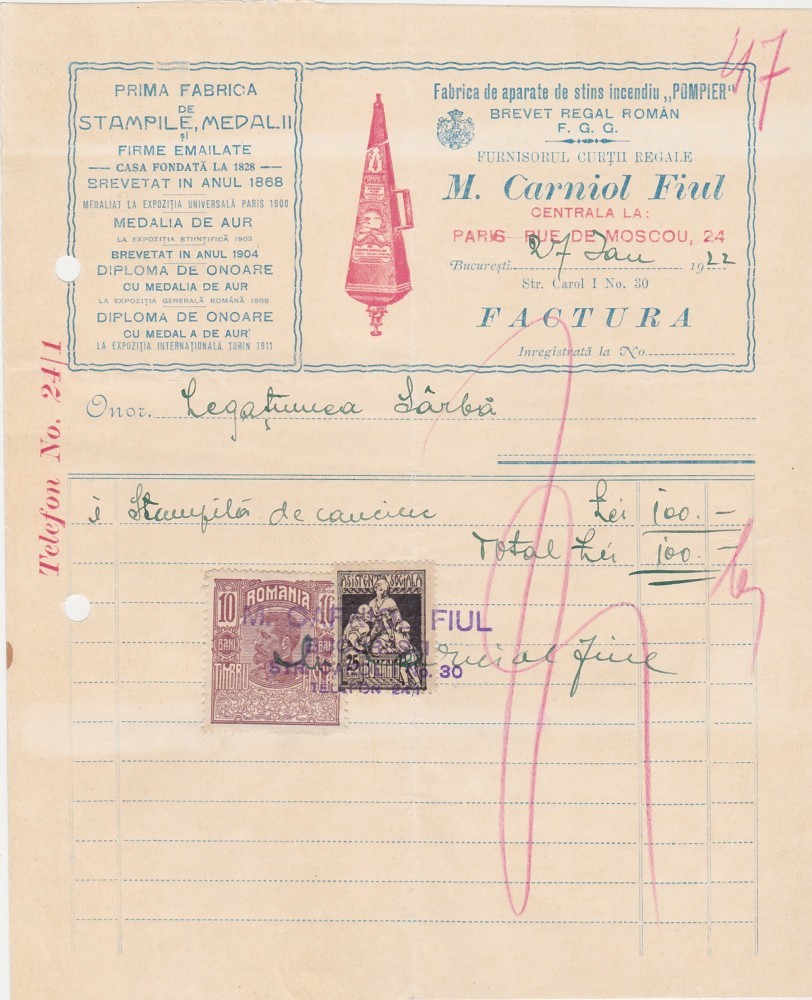 47
PRIMA FABRICA
DE
STAMPILE, MEDALII
și
FIRME EMAILATE
— CASA FONDATĂ LA 1828 —
BREVETAT IN ANUL 1868
MEDALIAT LA EXPOZIȚIA UNIVERSALĂ PARIS 1900
MEDALIA DE AUR
LA EXPOZIȚIA ȘTIINȚIFICĂ 1903
BREVETAT IN ANUL 1904
DIPLOMA DE ONOARE
CU MEDALIA DE AUR
LA EXPOZIȚIA GENERALĂ ROMÂNĂ 1906
DIPLOMA DE ONOARE
CU MEDALA DE AUR
LA EXPOZIȚIA INTERNAȚIONALĂ TURIN 1911
POMPIER
Fabrica de aparate de stins incendiu „POMPIER“
BREVET REGAL ROMÂN
F. G. G.
FURNISORUL CURȚII REGALE
M. Carniol Fiul
CENTRALA LA:
PARIS RUE DE MOSCOU, 24
București 27 Ian 1922
Str. Carol I No. 30
FACTURA
Inregistrată la No.
Telefon No. 24/1
Onor. Legațiunea Sârbă
1 Stampilă de cauciuc Lei 100.—
Total Lei 100.—
ROMANIA
10 10
BANI BANI
TIMBRU
ASISTENȚA SOCIALA
25
ROMANIA
M. CARNIOL FIUL
No. 30
TELEFON 24/1
Carniol Fiul